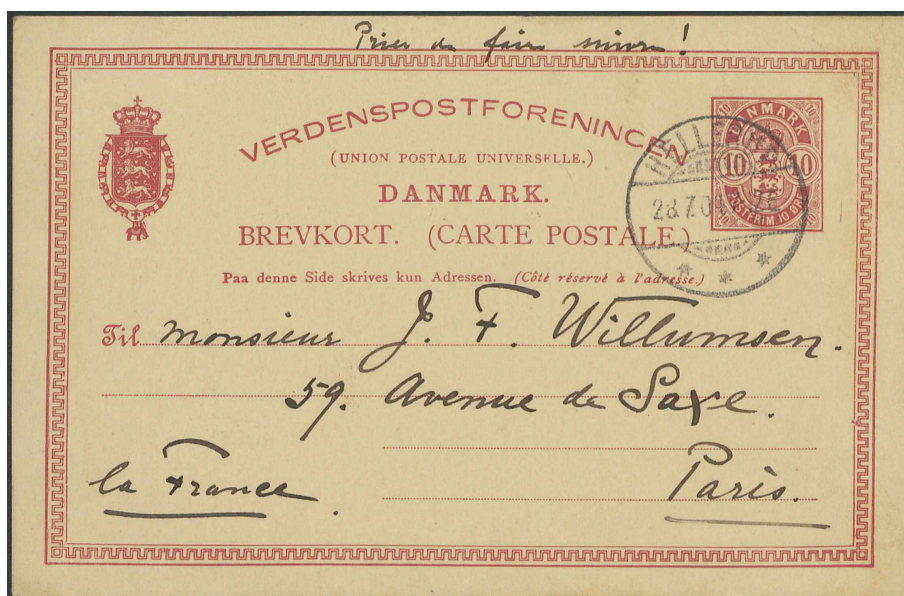 Prier de faire suivre!
VERDENSPOSTFORENINGEN
(UNION POSTALE UNIVERSELLE.)
DANMARK.
BREVKORT. (CARTE POSTALE.)
Paa denne Side skrives kun Adressen. (Côté réservé à l'adresse.)
DANMARK
10 10
POSTFRIM. 10 ØRE
28.7.04
Til monsieur J. F. Willumsen.
59. Avenue de Saxe.
la France Paris.